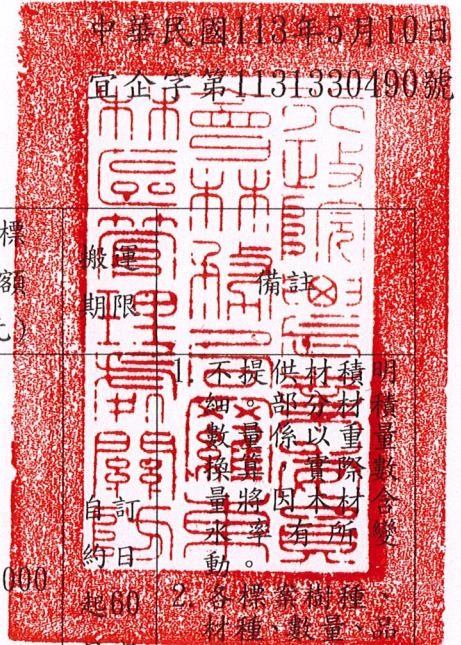 中華民國113年5月10日
宜企字第1131330490號
標
額
元)
搬運
期限
備註
000
自訂
約日
起60
1. 不提供材積明
細。部分材積
數量係以重量
換算,實際數
量將因木材含
水率有所變
動。
2. 各標案樹種、
材種、數量、品
行政院農業委
員會林務局羅東
林區管理處關防